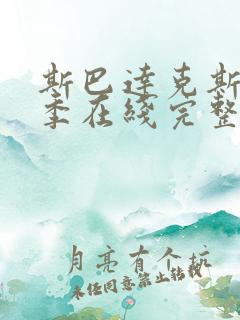 斯巴达克斯
季在线完整
月亮有个坑
未经同意禁止转载